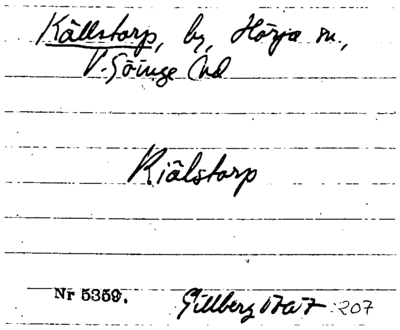 Källstorp, by, Hörja sn.,
V. Göinge hd
Kiälstorp
Nr 5359. Gillberg 1767 : 207